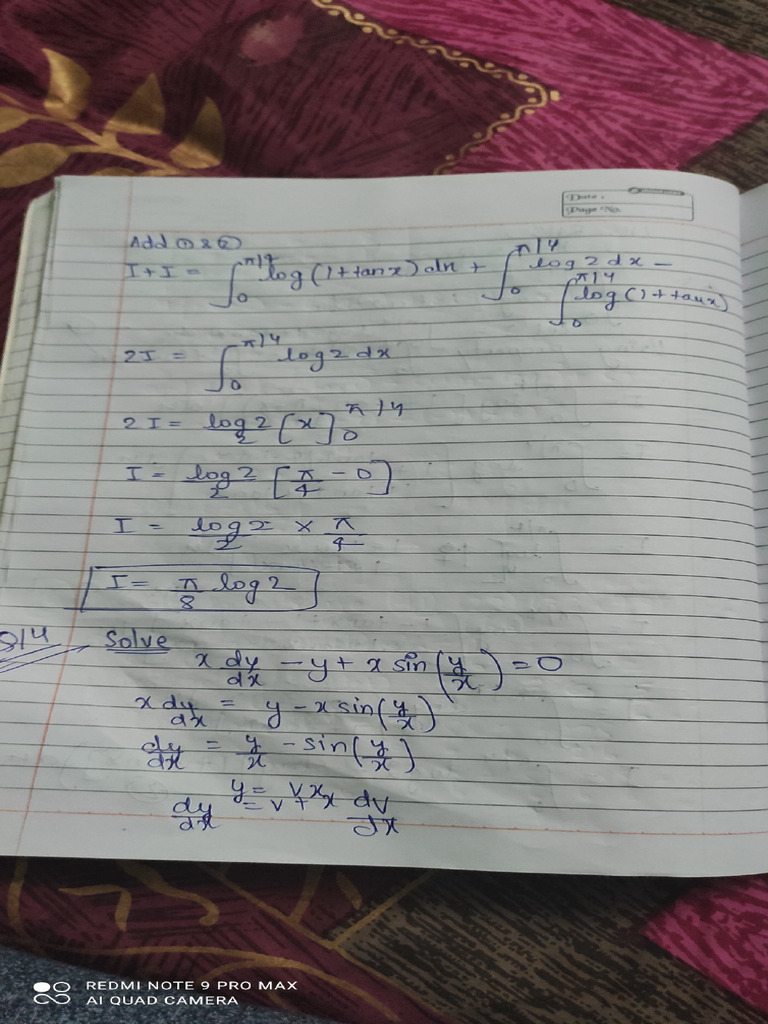 Date :
Page No.
Add ① & ②
I + I = ∫₀^π/4 log (1+tanx) dx + ∫₀^π/4 log 2 dx −
∫₀^π/4 log (1+tanx)
2I = ∫₀^π/4 log2 dx
2I = log2/2 [x]₀^π/4
I = log2/2 [π/4 − 0]
I = log2/2 × π/4
I = π/8 log 2
Q14 Solve
x dy/dx − y + x sin(y/x) = 0
x dy/dx = y − x sin(y/x)
dy/dx = y/x − sin(y/x)
y = vx
dy/dx = v + x dv/dx
REDMI NOTE 9 PRO MAX
AI QUAD CAMERA